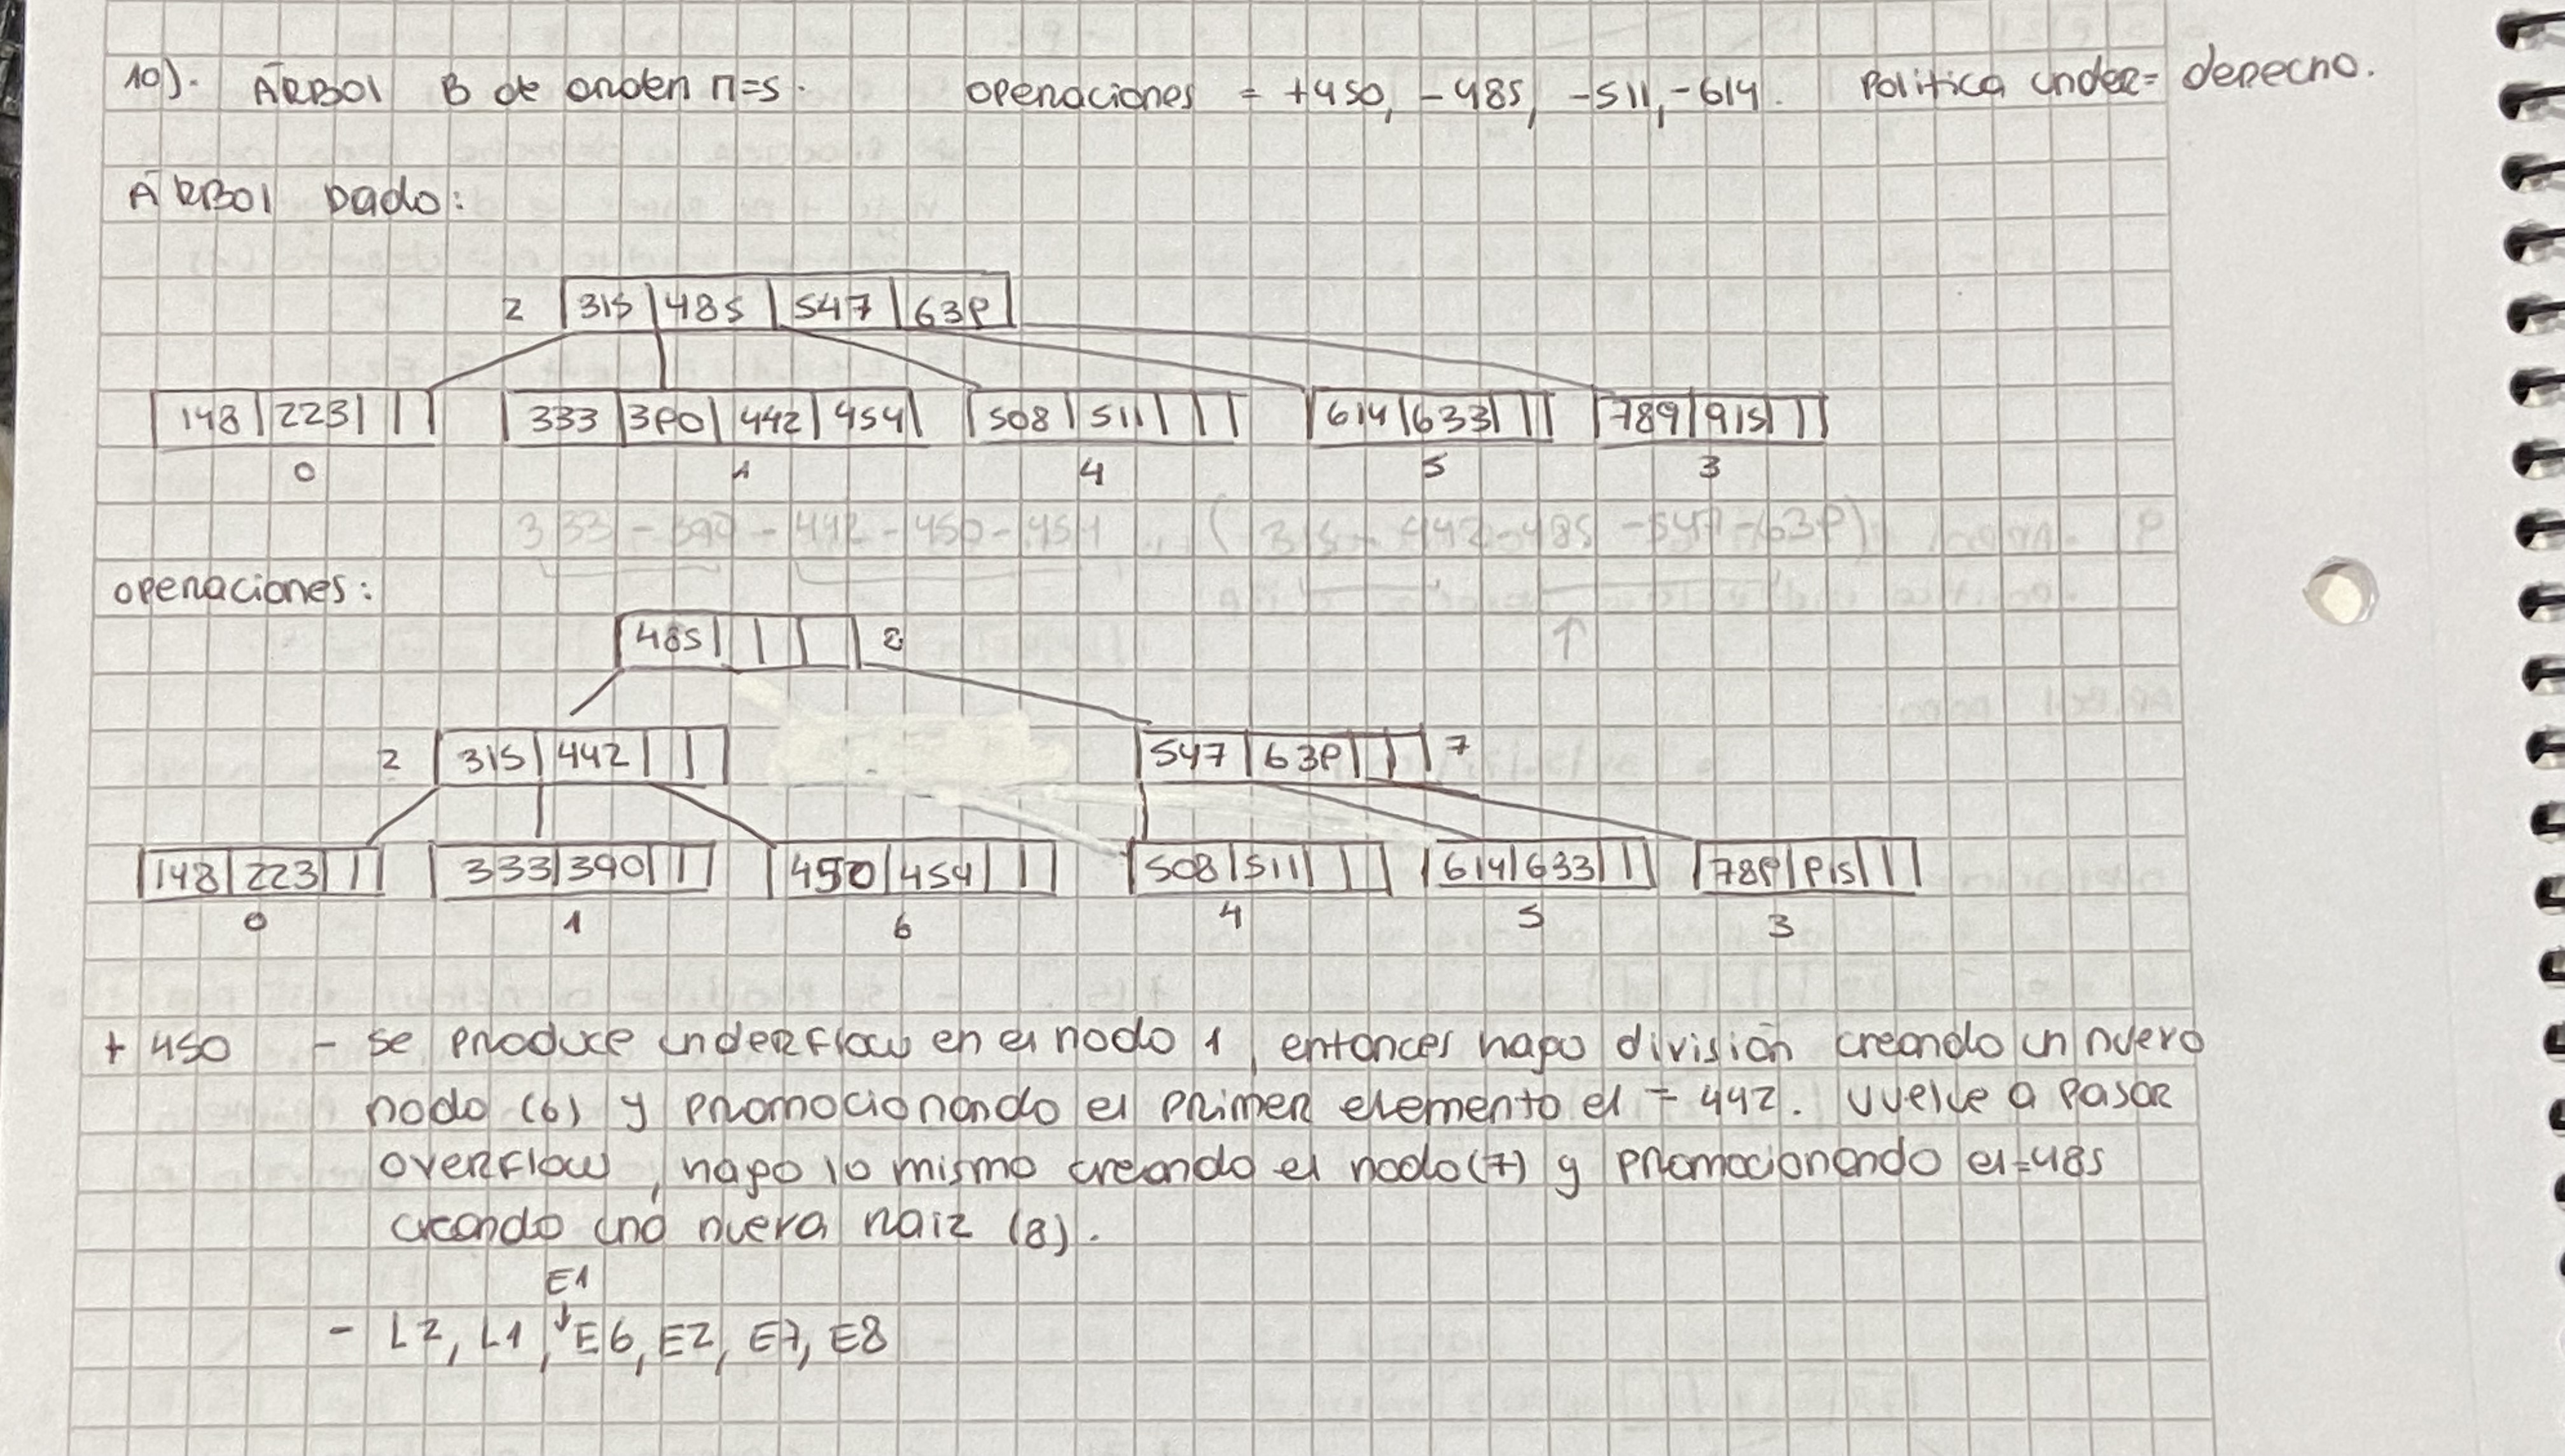 10). ÁRBOl B de orden n=5. operaciones = +450, -485, -511, -614. Politica under= derecho.
ÁRBOl Dado:
2 315 485 547 639
148 223 333 390 442 454 508 511 614 633 789 915
0 1 4 5 3
333 - 390 - 442 - 450 - 454 (315 - 442 - 485 - 547 - 639)
operaciones:
485 8
2 315 442 547 639 7
148 223 333 390 450 454 508 511 614 633 789 915
0 1 6 4 5 3
+ 450 - se produce underflow en el nodo 1, entonces hago división creando un nuevo
nodo (6) y promocionando el primer elemento el = 442. Vuelve a pasar
overflow, hago lo mismo creando el nodo (7) y promocionando el=485
creando una nueva raiz (8).
E1
- L2, L1, ↓E6, E2, E7, E8